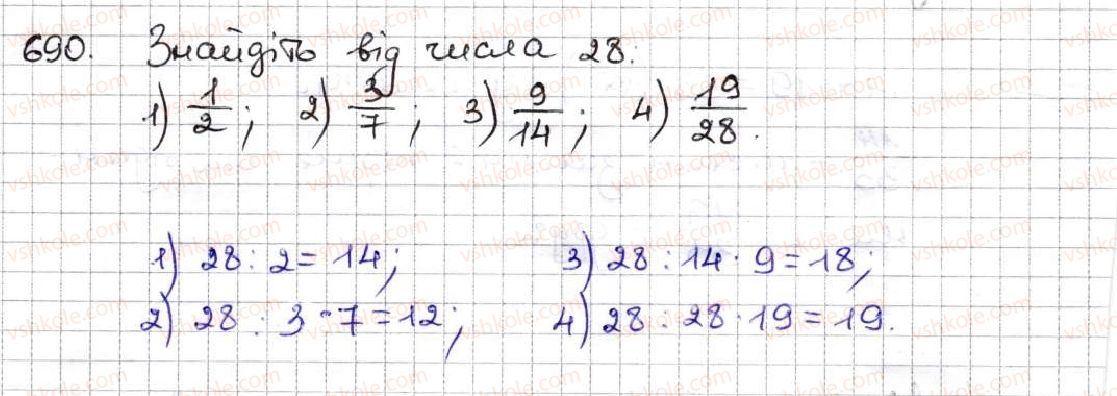 690. Знайдіть від числа 28:
1) 1/2; 2) 3/7; 3) 9/14; 4) 19/28.
1) 28 : 2 = 14; 3) 28 : 14 · 9 = 18;
2) 28 : 3 · 7 = 12; 4) 28 : 28 · 19 = 19.
vshkole.com